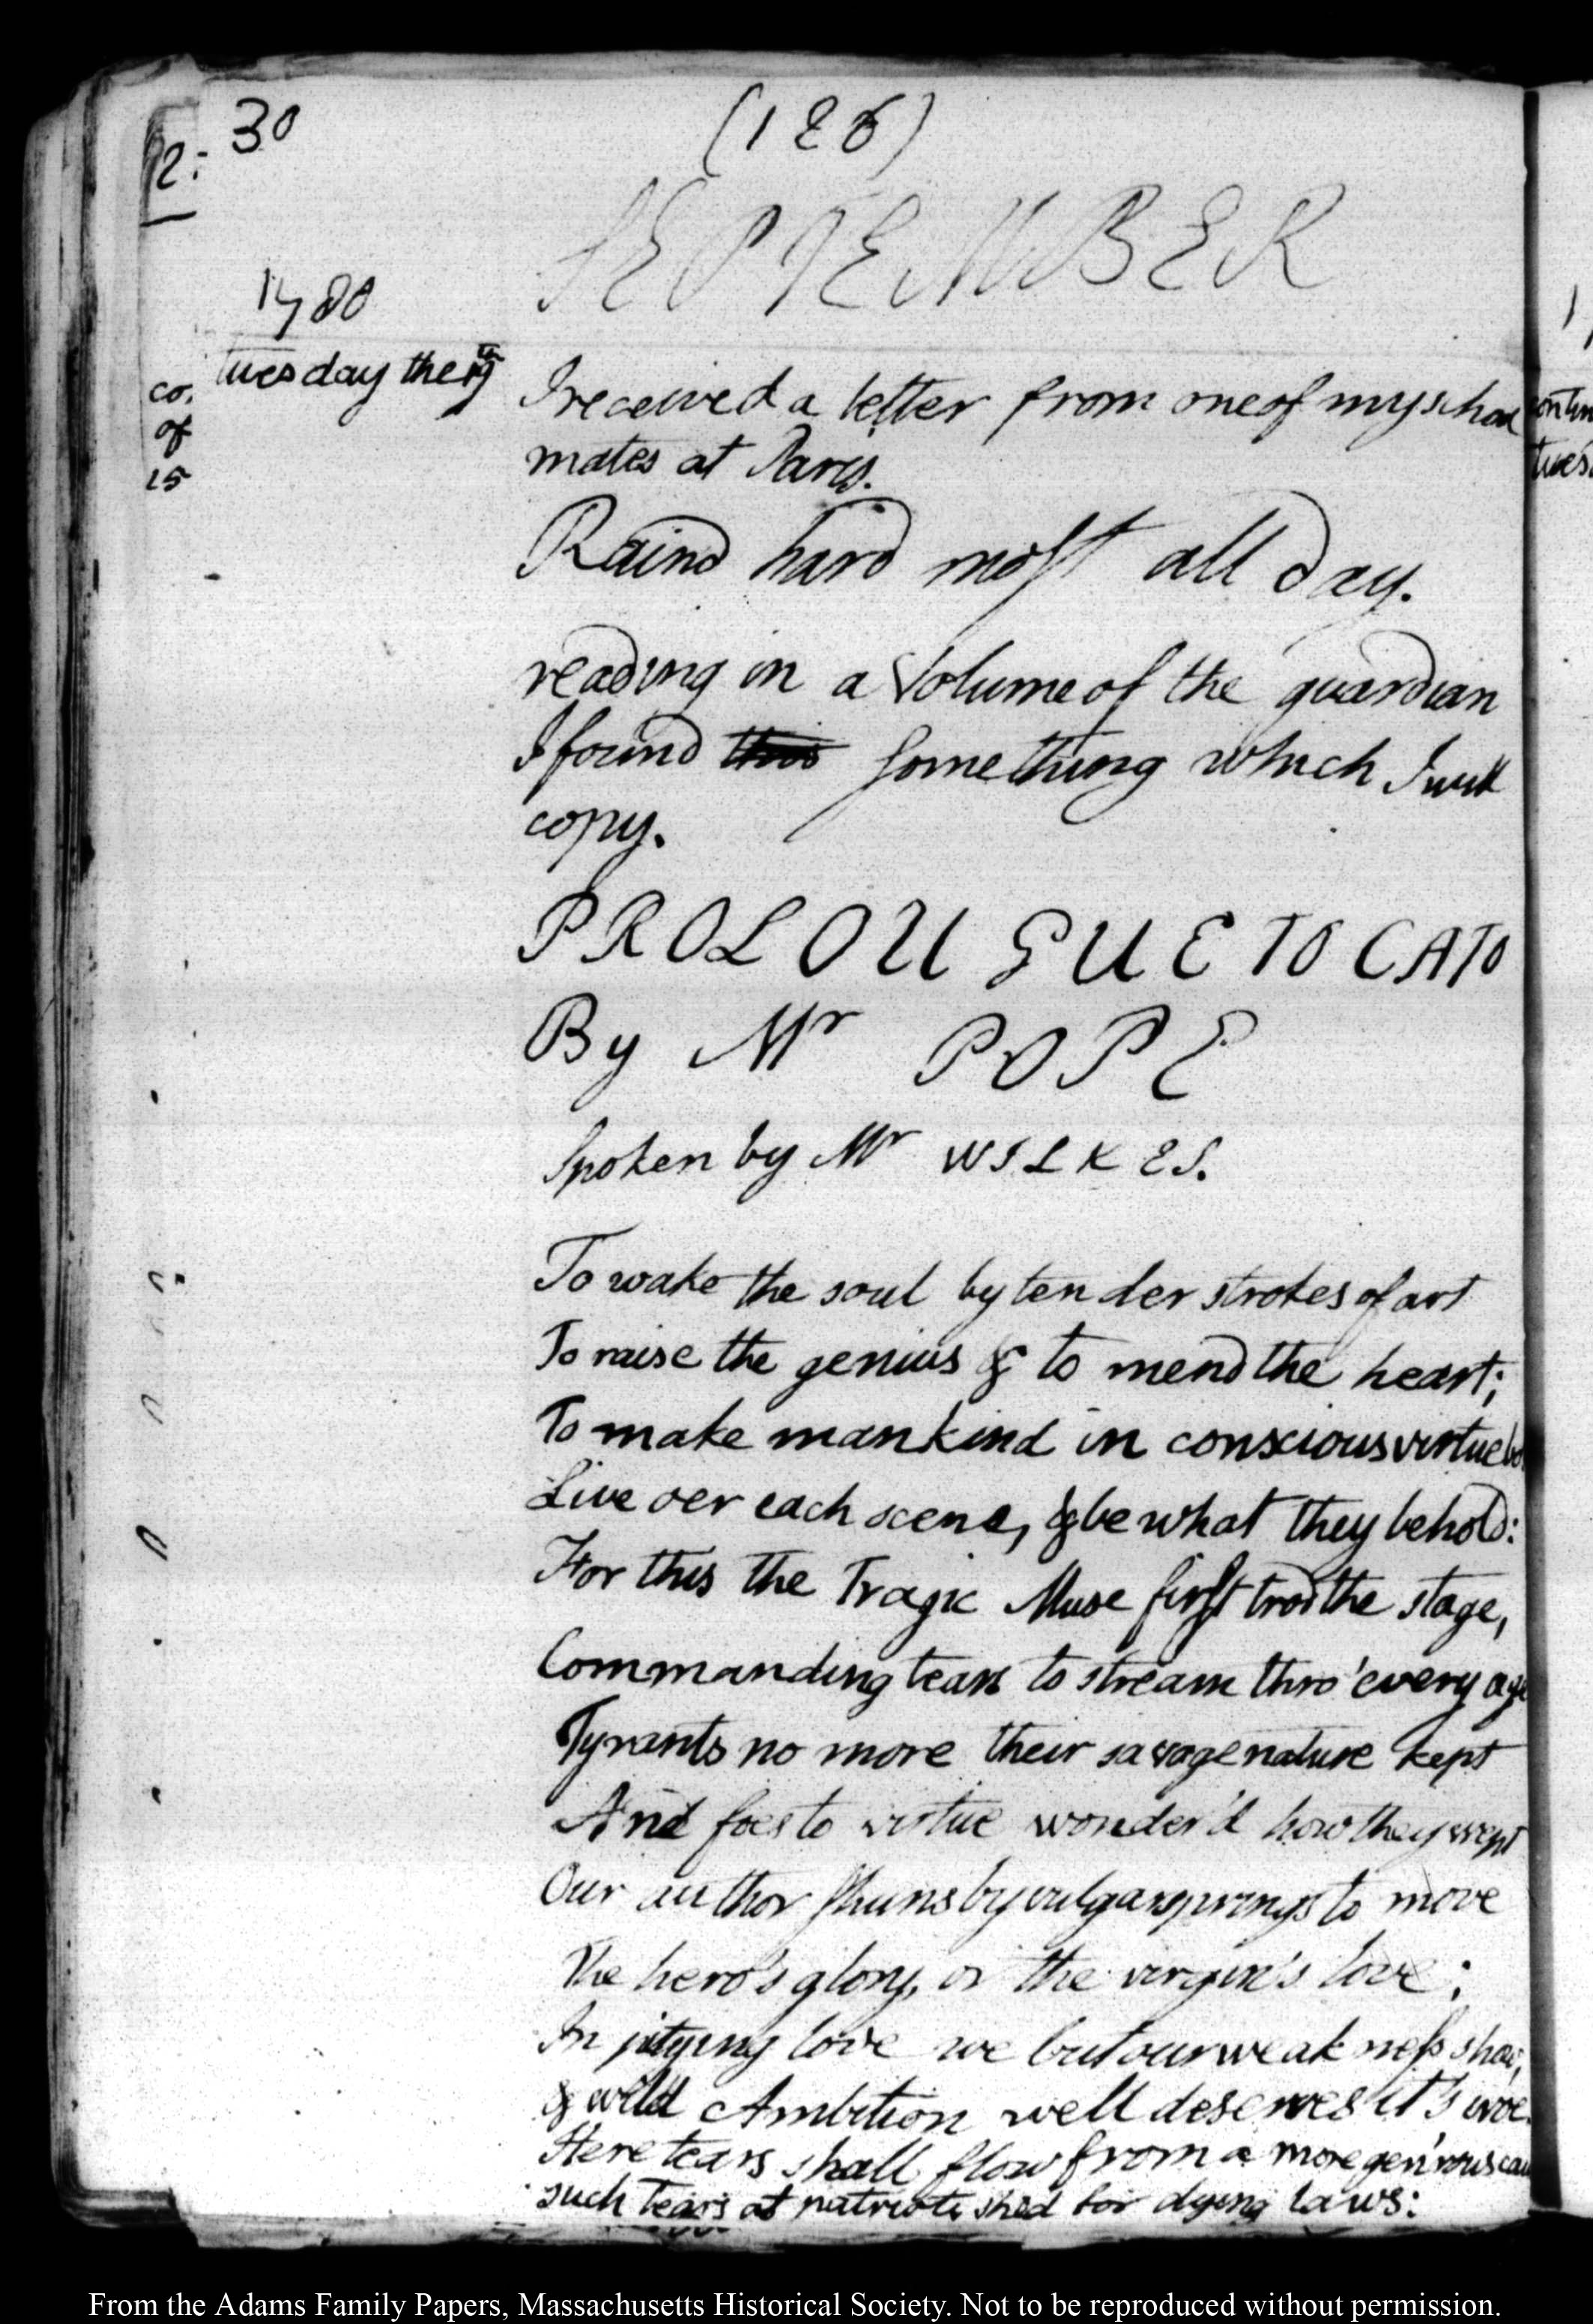 2:
30
(126)
SEPTEMBER
1780
tuesday the 19th
co.
of
15
I received a letter from one of my schoo
mates at Paris.
Raind hard most all day.
reading in a Volume of the guardian
I found this something which I will
copy.
PROLOUGUE TO CATO
By Mr POPE
Spoken by Mr WILKES.
To wake the soul by tender strokes of art
To raise the genius & to mend the heart;
To make mankind in conscious virtue bo
Live oer each scene, & be what they behold:
For this the Tragic Muse first trod the stage,
Commanding tears to stream thro' every age
Tyrants no more their savage nature kept
And foes to virtue wonder'd how they wept
Our author shuns by vulgar springs to move
The hero's glory, or the virgin's love;
In pitying love we but our weakness show,
& wild Ambition well deserves it's woe.
Here tears shall flow from a more gen'rous cau
such Tears as patriots shed for dying laws:
From the Adams Family Papers, Massachusetts Historical Society. Not to be reproduced without permission.